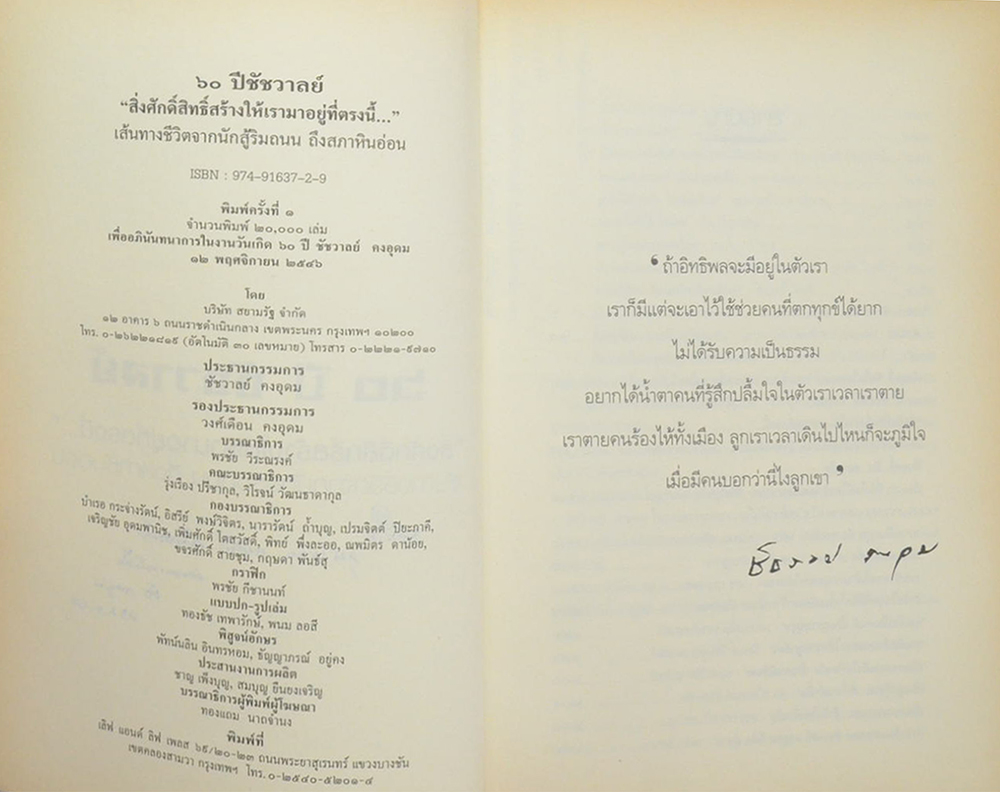 ๖๐ ปีชัชวาลย์
“สิ่งศักดิ์สิทธิ์สร้างให้เรามาอยู่ที่ตรงนี้...”
เส้นทางชีวิตจากนักสู้ริมถนน ถึงสภาหินอ่อน
ISBN : 974-91637-2-9
พิมพ์ครั้งที่ ๑
จำนวนพิมพ์ ๒๐,๐๐๐ เล่ม
เพื่ออภินันทนาการในงานวันเกิด ๖๐ ปี ชัชวาลย์ คงอุดม
๑๒ พฤศจิกายน ๒๕๔๖
โดย
บริษัท สยามรัฐ จำกัด
๑๒ อาคาร ๖ ถนนราชดำเนินกลาง เขตพระนคร กรุงเทพฯ ๑๐๒๐๐
โทร. ๐-๒๖๒๒๑๘๑๙ (อัตโนมัติ ๓๐ เลขหมาย) โทรสาร ๐-๒๒๒๑-๙๗๑๐
ประธานกรรมการ
ชัชวาลย์ คงอุดม
รองประธานกรรมการ
วงศ์เดือน คงอุดม
บรรณาธิการ
พรชัย วีระณรงค์
คณะบรรณาธิการ
รุ่งเรือง ปรีชากุล, วิโรจน์ วัฒนธาดากุล
กองบรรณาธิการ
บำเรอ กระจ่างรัตน์, อิสรีย์ พงษ์วิจิตร, นารารัตน์ ถ้ำบุญ, เปรมจิตต์ ปิยะภาคี,
เจริญชัย อุดมพานิช, เพิ่มศักดิ์ ไตสวัสดิ์, พิทย์ พึ่งละออ, ณพมิตร ดาน้อย,
ขจรศักดิ์ สายชุม, กฤษดา พันธ์สุ
กราฟิก
พรชัย กีชานนท์
แบบปก-รูปเล่ม
ทองธัช เทพารักษ์, พนม ลอสี
พิสูจน์อักษร
พัทน์นลิน อินทรหอม, ธัญญาภรณ์ อยู่คง
ประสานงานการผลิต
ชาญ เพ็งบุญ, สมบุญ ยืนยงเจริญ
บรรณาธิการผู้พิมพ์ผู้โฆษณา
ทองแถม นาถจำนง
พิมพ์ที่
เลิฟ แอนด์ ลิฟ เพลส ๖๙/๒๐-๒๓ ถนนพระยาสุเรนทร์ แขวงบางชัน
เขตคลองสามวา กรุงเทพฯ โทร. ๐-๒๕๔๐-๕๒๐๑-๔
‘ ถ้าอิทธิพลจะมีอยู่ในตัวเรา
เราก็มีแต่จะเอาไว้ใช้ช่วยคนที่ตกทุกข์ได้ยาก
ไม่ได้รับความเป็นธรรม
อยากได้น้ำตาคนที่รู้สึกปลื้มใจในตัวเราเวลาเราตาย
เราตายคนร้องไห้ทั้งเมือง ลูกเราเวลาเดินไปไหนก็จะภูมิใจ
เมื่อมีคนบอกว่านี่ไงลูกเขา ’